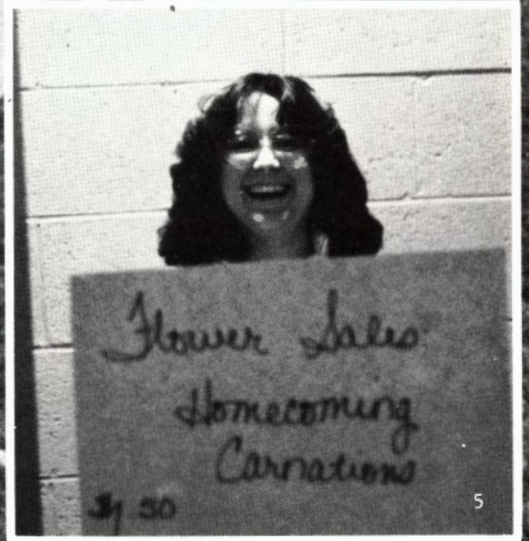 Flower Sales
Homecoming
Carnations
$1 50
5